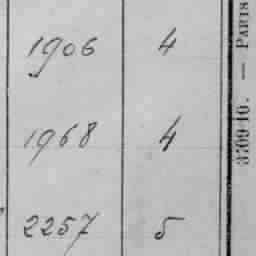 1906 4
1968 4
2257 5
3709-10. — PARIS